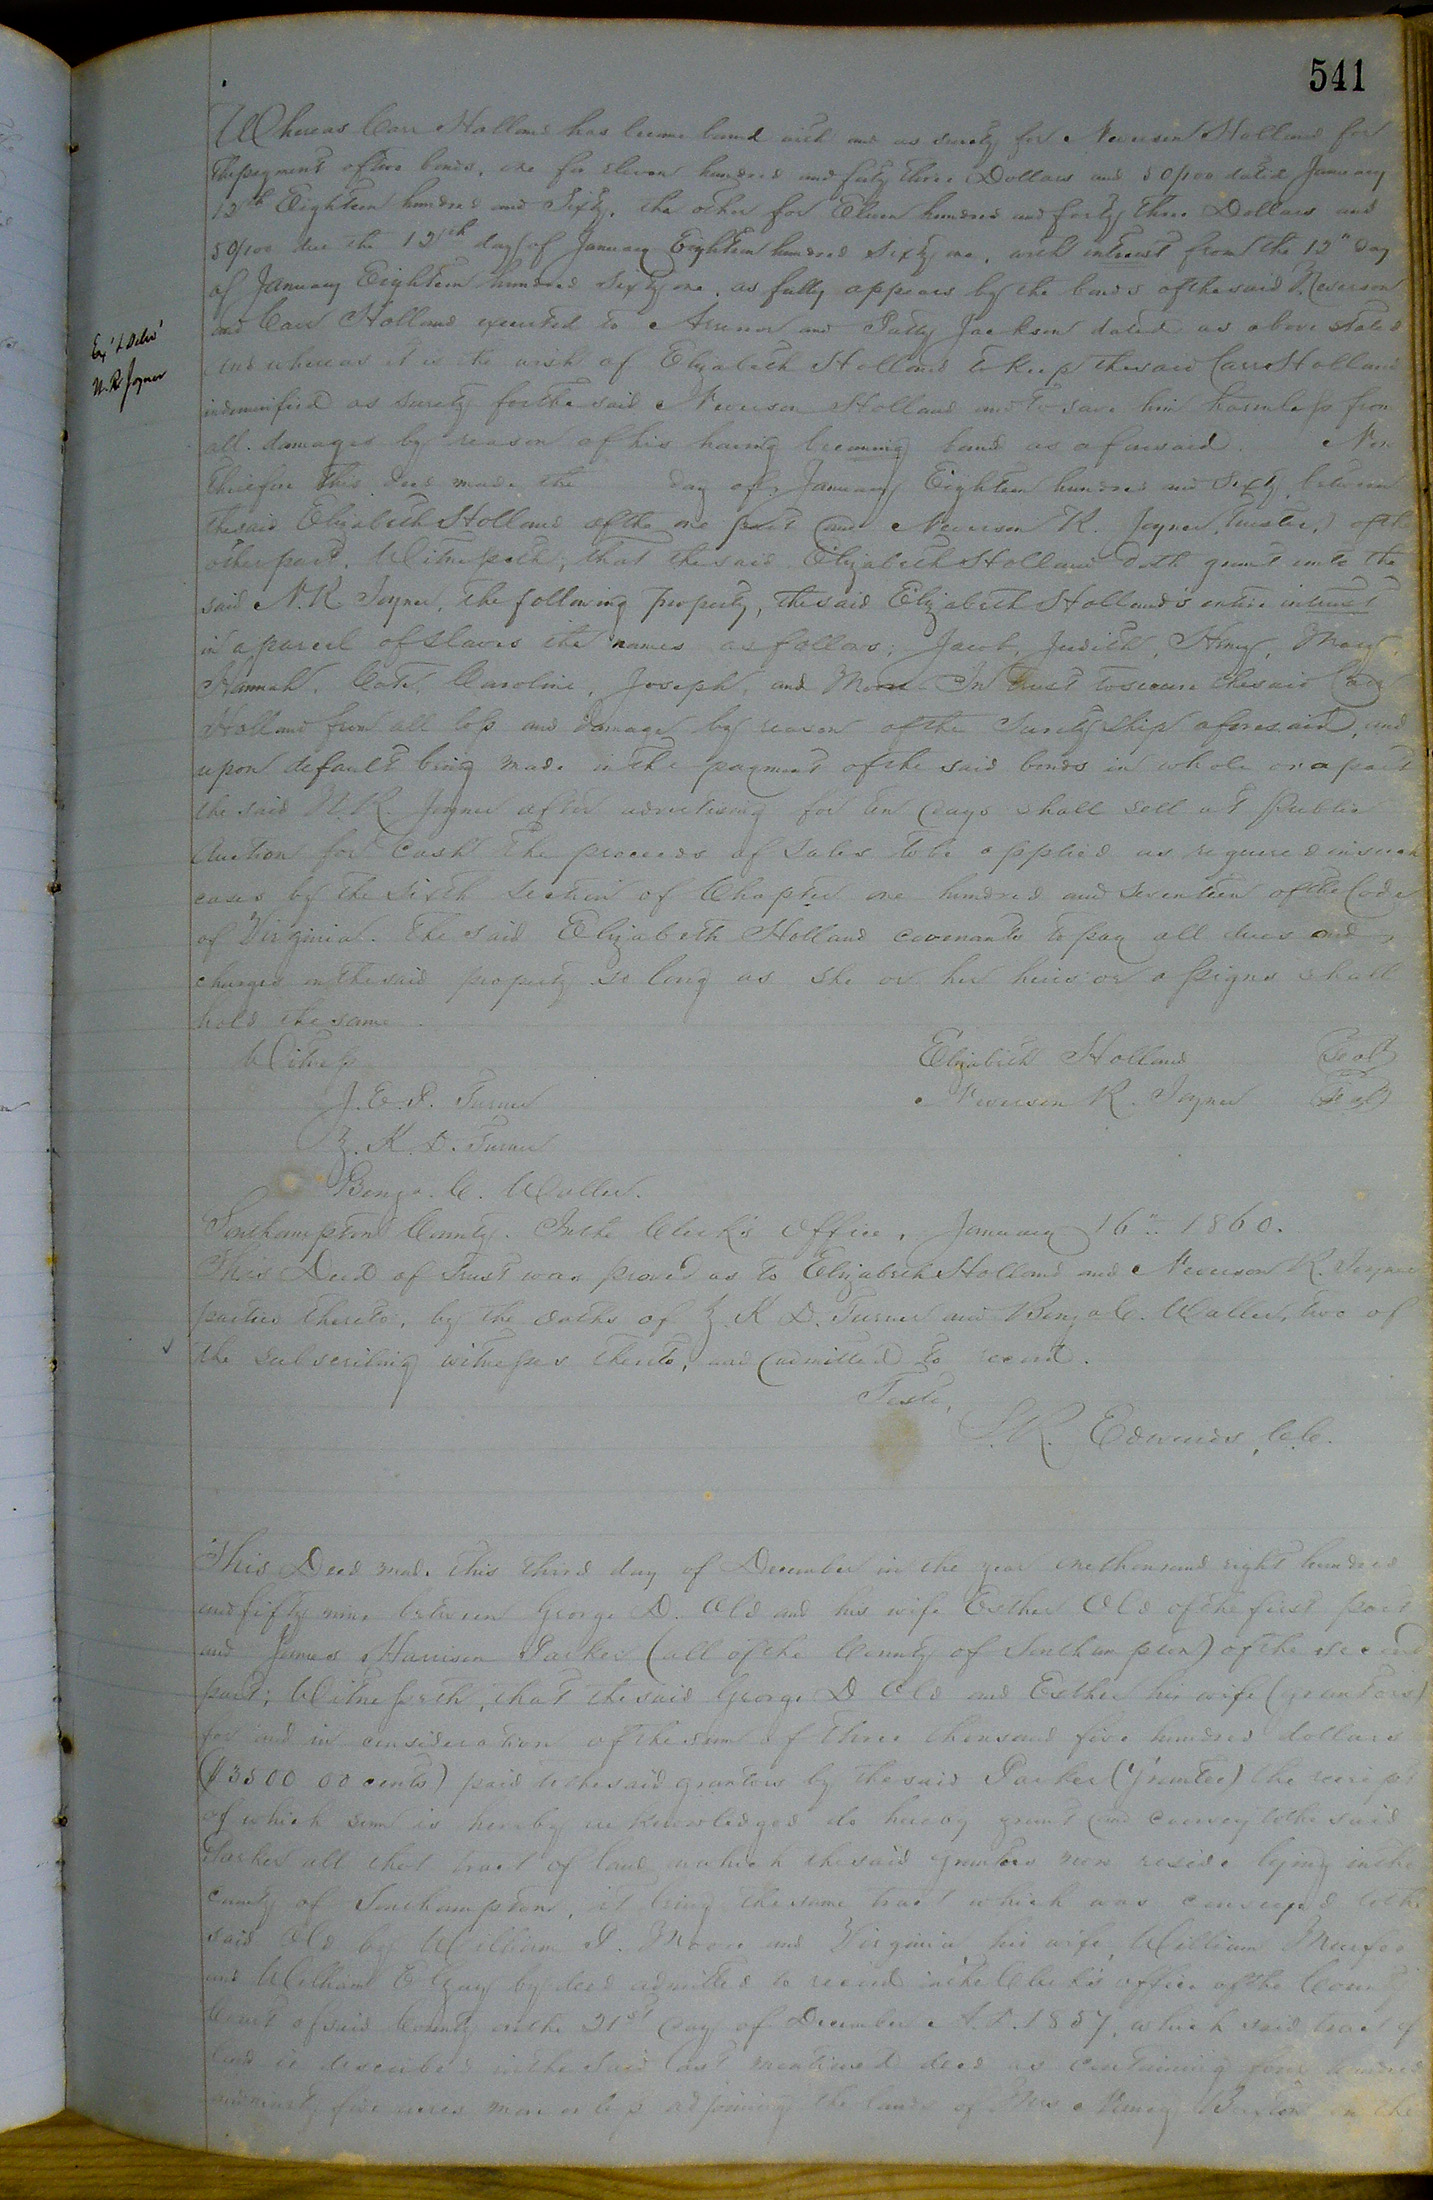 541
Whereas Carr Holland has become bound with and as surety for Neverson Holland for
the payment of two bonds, one for eleven hundred and forty three Dollars and 50/100 dated January
12th Eighteen hundred and Sixty, the other for Eleven hundred and forty three Dollars and
50/100 due the 12th day of January Eighteen hundred Sixty one, with interest from the 12" day
of January Eighteen hundred Sixty one, as fully appears by the bonds of the said Neverson
and Carr Holland executed to and Patty Jackson dated as above stated
Exd & Deld
N. R. Joyner
And whereas it is the wish of Elizabeth Holland to keep the said Carr Holland
indemnified as surety for the said Neverson Holland and to save him harmless from
all damages by reason of his having becoming bound as aforesaid. Now
therefore this deed made the day of January Eighteen hundred and Sixty between
the said Elizabeth Holland of the one part and Neverson R. Joyner, Trustee, of the
other part, Witnesseth; that the said Elizabeth Holland doth grant unto the
said N. R. Joyner, the following property, the said Elizabeth Holland's entire interest
in a parcel of slaves the names as follows; Jacob, Judith, Henry, Mary,
Hannah, Cate, Caroline, Joseph, and In Trust to secure the said Carr
Holland from all loss and damage by reason of the Surety Ship aforesaid, and
upon default being made in the payment of the said bonds in whole or a part
the said N. R. Joyner after advertising for ten days shall sell at Public
Auction for Cash The proceeds of sales to be applied as required in such
cases by the sixth section of Chapter one hundred and seventeen of the Code
of Virginia. The said Elizabeth Holland covenants to pay all dues and
charges on the said property so long as she or her heirs or assigns shall
hold the same.
Witness
Elizabeth Holland (Seal)
J. E. P. Turner
Neverson R. Joyner (Seal)
Z. K. D. Turner
Benja. C. Waller.
Southampton County. In the Clerk's Office, January 16" 1860.
This Deed of Trust was proved as to Elizabeth Holland and Neverson R. Joyner
parties thereto, by the oaths of Z. K. D. Turner and Benja C. Waller, two of
the subscribing witnesses thereto, and admitted to record.
Teste,
L. R. Edwards, C.C.
This Deed made this third day of December in the year one thousand eight hundred
and fifty nine between George D. Old and his wife Esther Old of the first part
and James Harrison Parker (all of the County of Southampton) of the second
part; Witnesseth, that the said George D Old and Esther his wife (grantors)
for and in consideration of the sum of three thousand five hundred dollars
($3500 00 cents) paid to the said grantors by the said Parker (Grantee) the receipt
of which sum is hereby acknowledged do hereby grant and convey to the said
Parker all that tract of land on which the said grantors now reside lying in the
County of Southampton, it being the same tract which was conveyed to the
said Old by William P. Moore and Virginia his wife, William
and William E by deed admitted to record in the Clerk's office of the County
Court of said County on the 21st day of December A.D. 1857, which said tract of
land is described in the said last mentioned deed as containing four hundred
and ninety five acres more or less adjoining the lands of Mrs Nancy in the